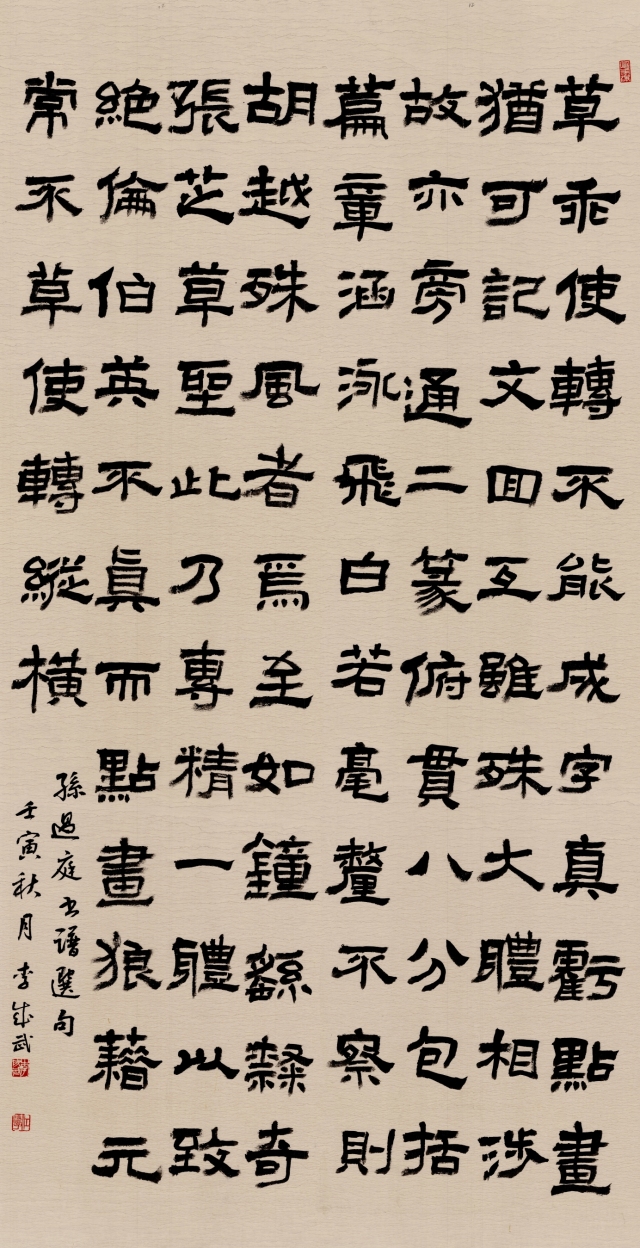 草乖使轉不能成字真虧點畫
猶可記文回互雖殊大體相涉
故亦旁通二篆俯貫八分包括
篇章涵泳飛白若毫釐不察則
胡越殊風者焉至如鐘繇隸奇
張芝草聖此乃專精一體以致
絕倫伯英不真而點畫狼藉元
常不草使轉縱橫
孫過庭書譜選句
壬寅秋月李成武